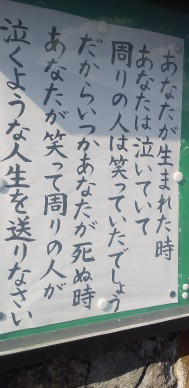 あなたが生まれた時
あなたは泣いていて
周りの人は笑っていたでしょう
だからいつかあなたが死ぬ時
あなたが笑って周りの人が
泣くような人生を送りなさい